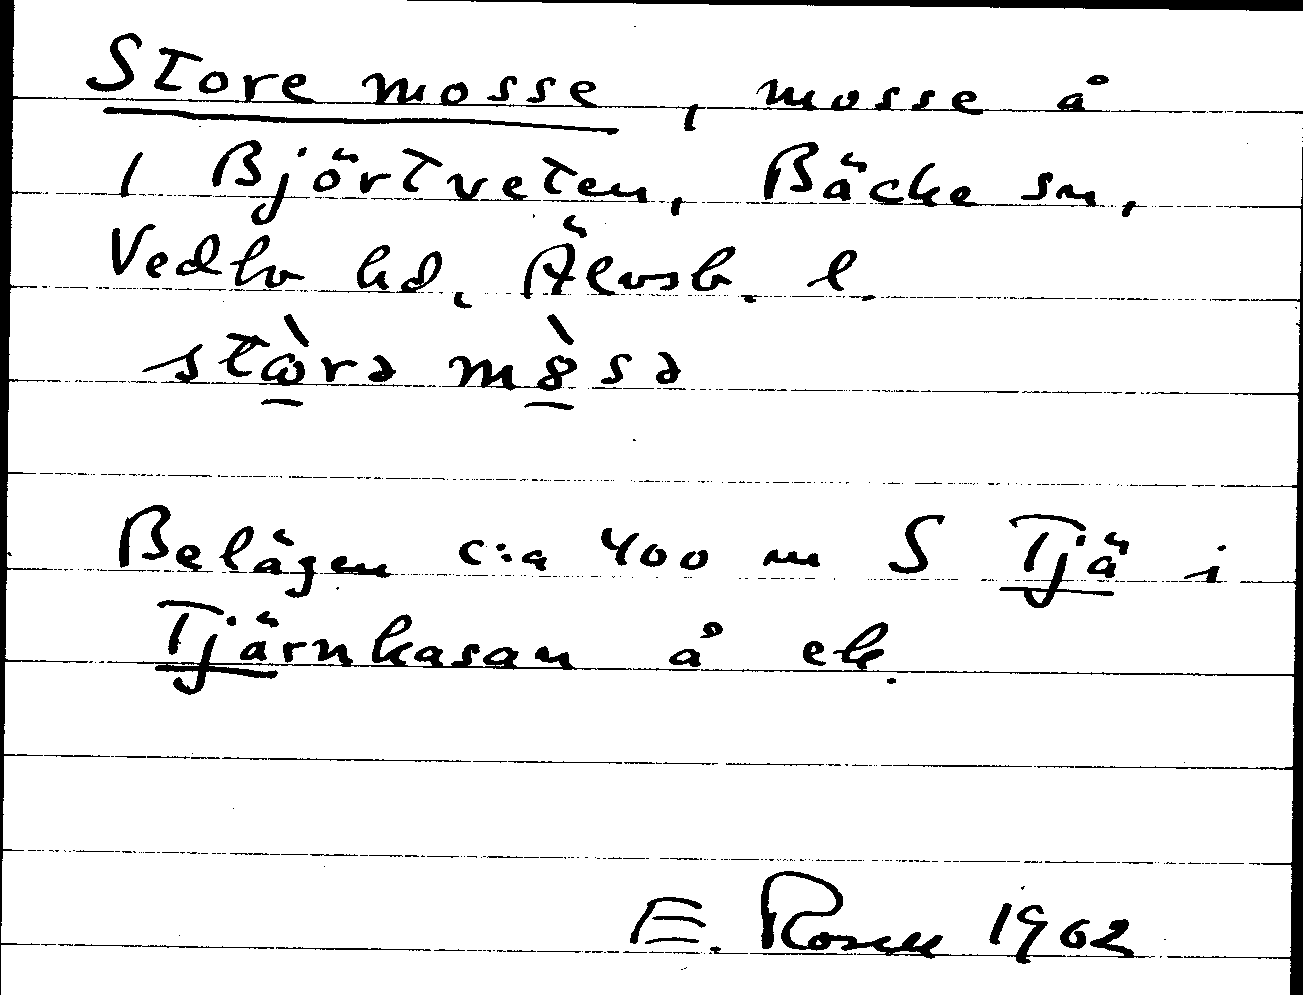 Store mosse, mosse å
1 Björtveten, Bäcke sn,
Vedbo hd, Älvsb. l.
stὼrə m8̀sə
Belägen c:a 400 m S Tjä i
Tjärnkasan å ek.
E. Rosell 1962